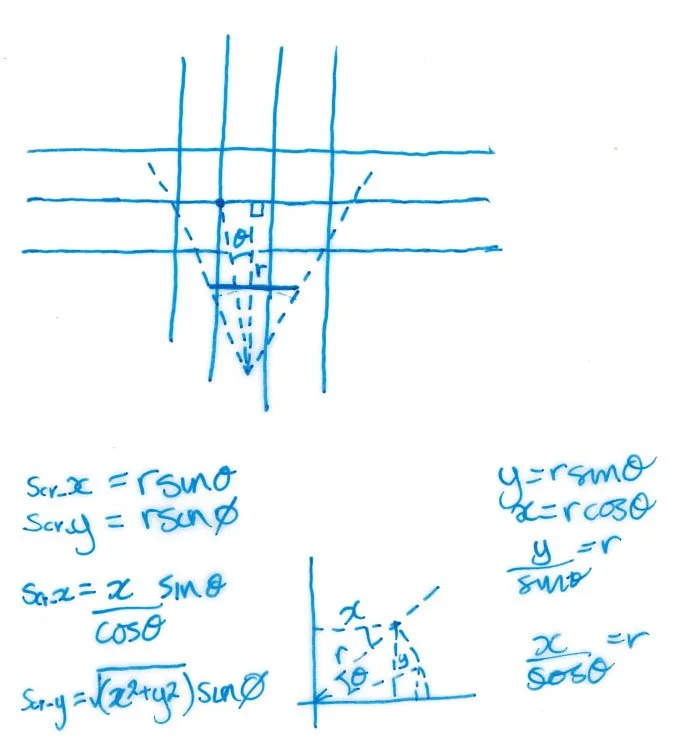 θ
r
scr_x = r sinθ
scr_y = r sin∅
scr_x = x/cosθ sinθ
scr_y = √(x²+y²) sin∅
x
r
θ
y
y = r sinθ
x = r cosθ
y/sinθ = r
x/cosθ = r